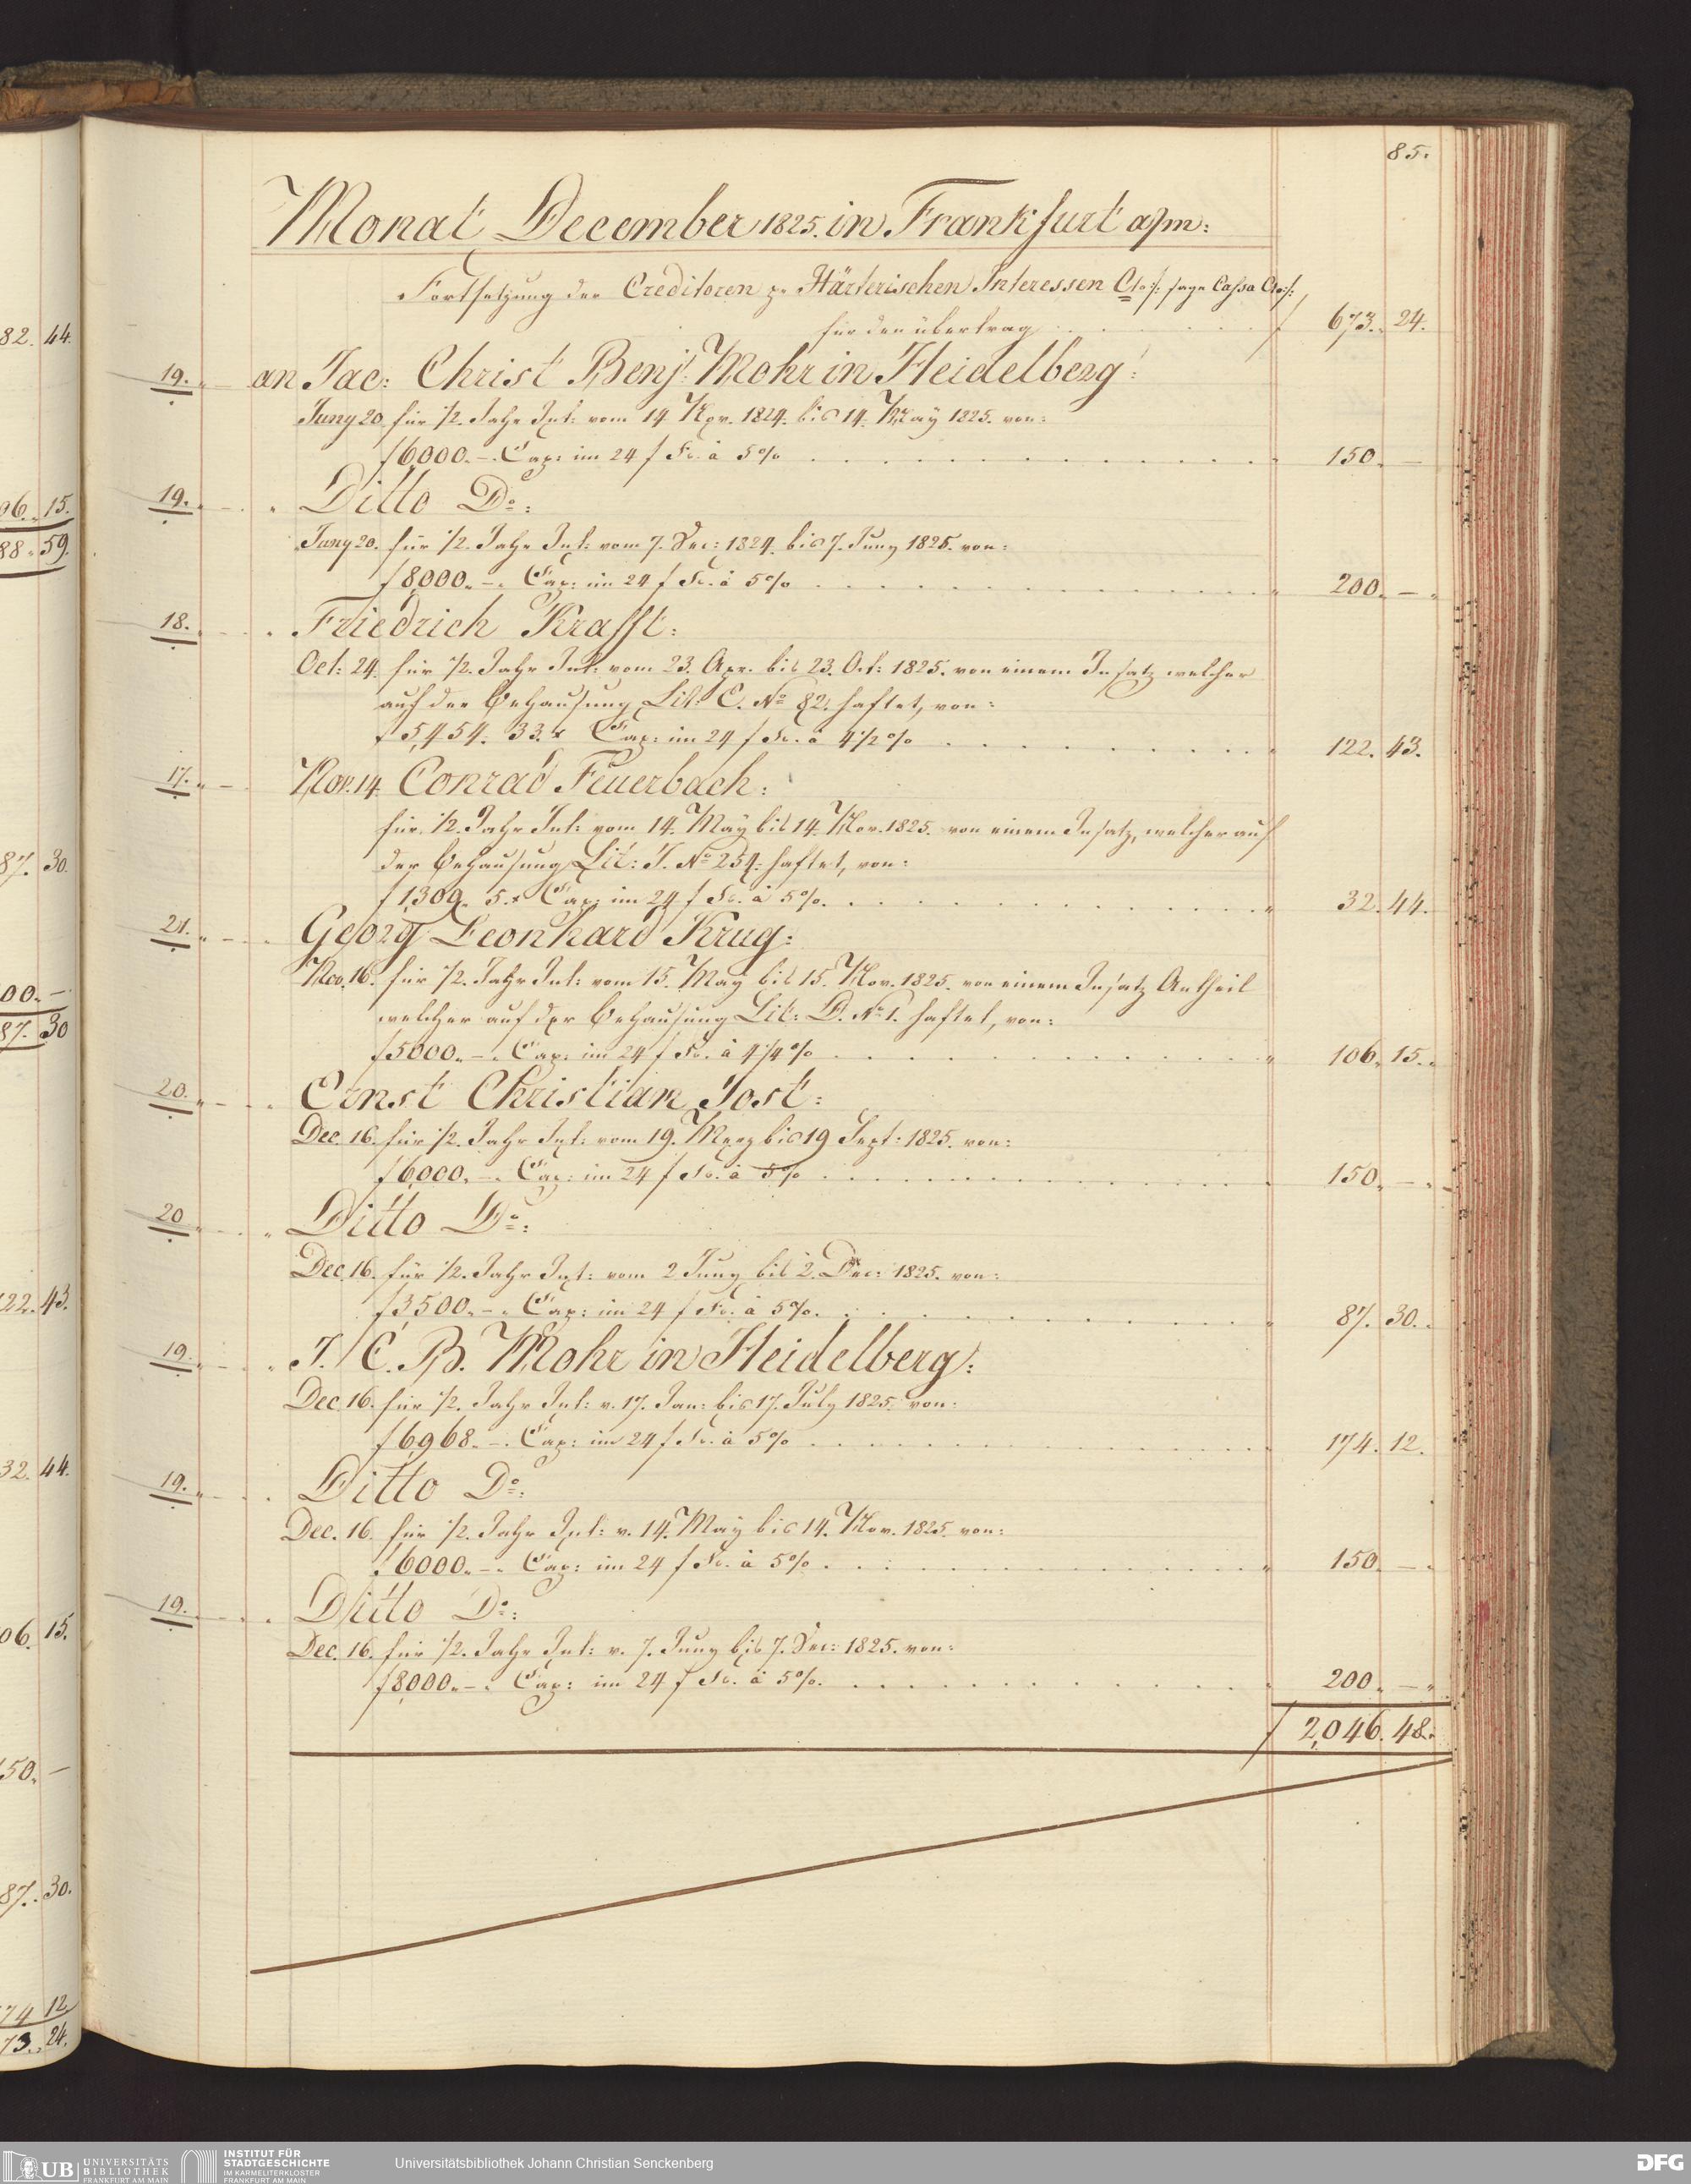 85.
Monat December 1825. in Frankfurt a/m:
Fortsetzung der Creditoren pr Härterischen Interessen Cto:/: sage Cassa Cto:/:
für den übertrag . . . . f 673. 24.
19. an Jac: Christ Benj: Mohr in Heidelberg:
Juny 20. für 1/2. Jahr Int: vom 14 Nov. 1824. bis 14. May 1825. von:
f 6000.–. Cap: im 24 f Fs. à 5% . . . . " 150. –
19. " Ditto Do:
Juny 20. für 1/2. Jahr Int: vom 7. Dec: 1824. bis 7. Juny 1825. von:
f 8,000.–. Cap: im 24 f Fs. à 5% . . . . " 200. – "
18. " Friedrich Krafft:
Oct: 24. für 1/2. Jahr Int: vom 23. Apr. bis 23. Oct: 1825. von einem Insatz welcher
auf der Behausung Lit: C. No 82. haftet, von:
f 5,454. 33.x Cap: im 24 f Fs. à 4 1/2 % . . . . " 122. 43.
17. " Nov. 14. Conrad Feuerbach:
für 1/2. Jahr Int: vom 14. May bis 14. Nov. 1825. von einem Insatz, welcher auf
der Behausung Lit: J. No 254. haftet, von:
f 1,309. 5.x Cap: im 24 f Fs. à 5%. . . . . " 32. 44.
21. " Georg Leonhard Krug:
Nov. 16. für 1/2. Jahr Int: vom 15. May bis 15. Nov. 1825. von einem Insatz Antheil
welcher auf der Behausung Lit: D. No 1. haftet, von:
f 5000.–. Cap: im 24 f Fs. à 4 1/4 % . . . . " 106. 15.
20. " Ernst Christian Jost:
Dec. 16. für 1/2. Jahr Int: vom 19. Merz bis 19 Sept: 1825. von:
f 6,000.–. Cap: im 24 f Fs. à 5% . . . . " 150. – "
20 " Ditto Do:
Dec. 16. für 1/2. Jahr Int: vom 2 Juny bis 2. Dec: 1825. von:
f 3,500.–. Cap: im 24 f Fs. à 5%. . . . . " 87. 30.
19. " J. C. B. Mohr in Heidelberg:
Dec. 16. für 1/2. Jahr Int: v. 17. Jan: bis 17. July 1825. von:
f 6,968.–. Cap: im 24 f Fs. à 5% . . . . " 174. 12.
19. " Ditto Do:
Dec. 16. für 1/2. Jahr Int: v. 14. May bis 14. Nov. 1825. von:
f 6000.–. Cap: im 24 f Fs. à 5% . . . . " 150. –
19. " Ditto Do:
Dec. 16. für 1/2. Jahr Int: v. 7. Juny bis 7. Dec: 1825. von:
f 8,000.–. Cap: im 24 f Fs. à 5%. . . . . " 200. – "
f 2,046. 48.
82. 44.
06. 15.
88. 59.
87. 30.
00. –
87. 30
22. 43.
32. 44.
06. 15.
150. –
87. 30.
74 12
73. 24.
UB UNIVERSITÄTS BIBLIOTHEK FRANKFURT AM MAIN
INSTITUT FÜR STADTGESCHICHTE IM KARMELITERKLOSTER FRANKFURT AM MAIN
Universitätsbibliothek Johann Christian Senckenberg
DFG